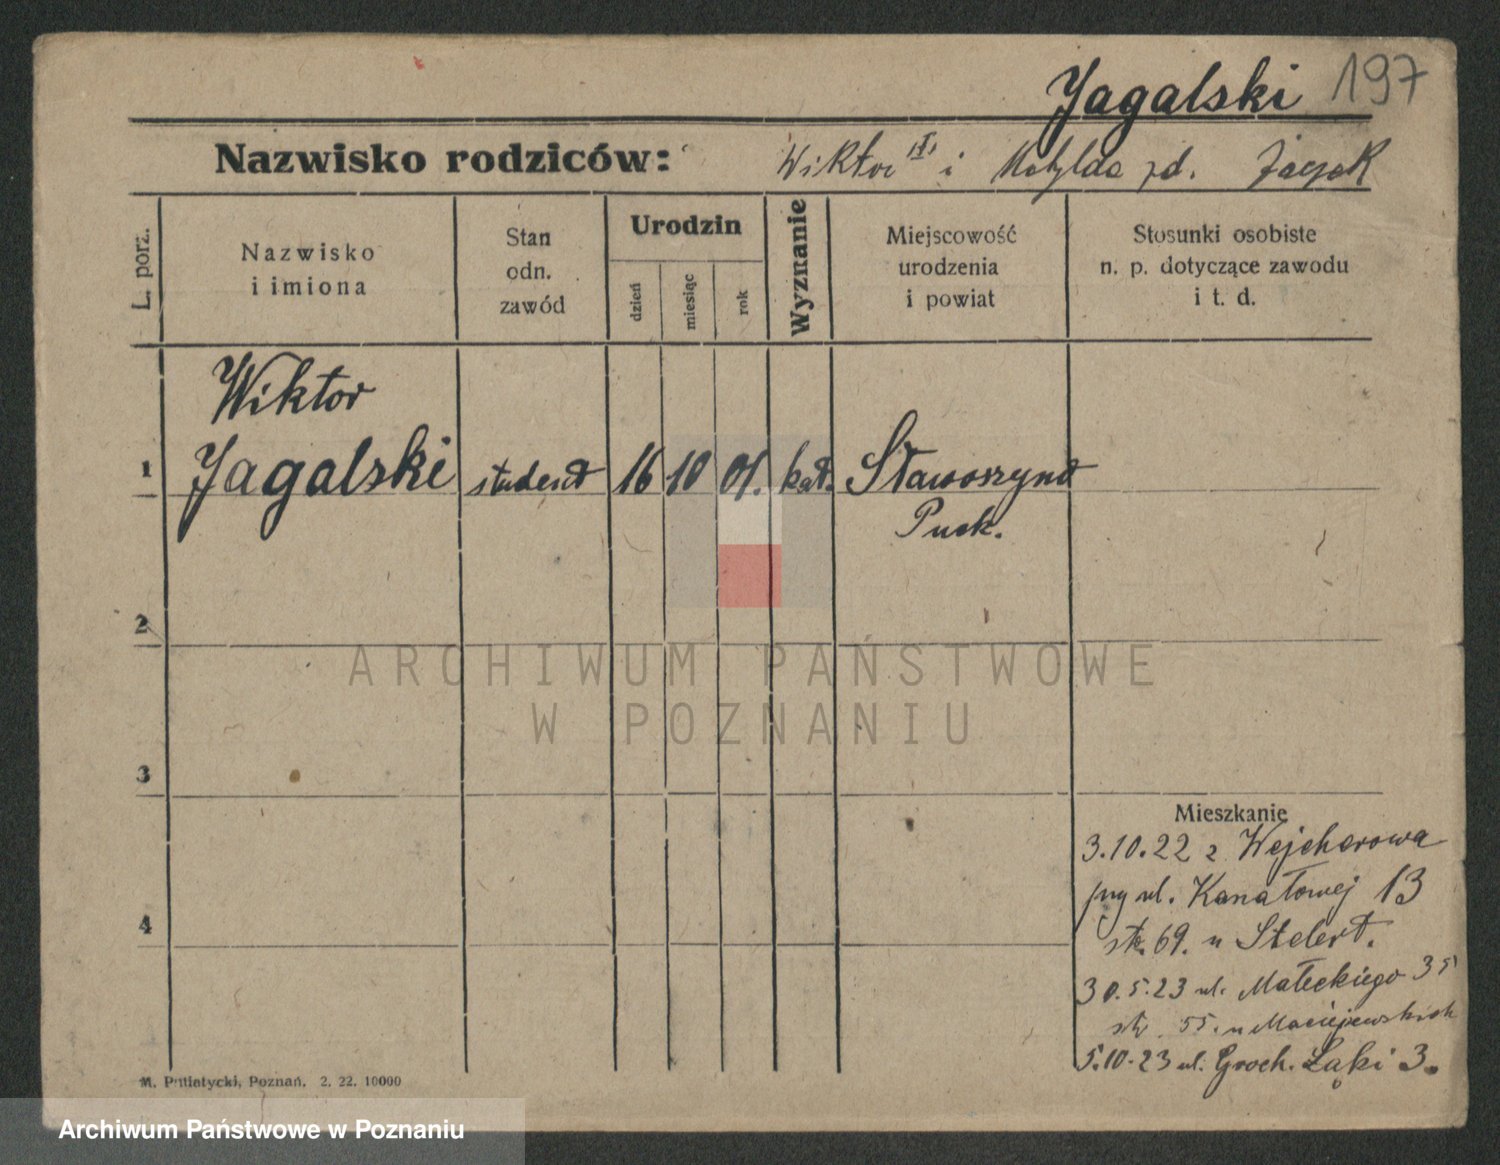 Jagalski 197
Nazwisko rodziców: Wiktor i Matylda zd.
L. porz.
Nazwisko
i imiona
Stan
odn.
zawód
Urodzin
dzień
miesiąc
rok
Wyznanie
Miejscowość
urodzenia
i powiat
Stosunki osobiste
n. p. dotyczące zawodu
i t. d.
Wiktor
1 Jagalski student 16 10 01. kat. Sławoszynd
Puck.
2
ARCHIWUM PAŃSTWOWE
W POZNANIU
3
Mieszkanie
3.10.22 z Wejcherowa
przy ul. Kanałowej 13
4
str. 69. u Stelert.
30.5.23 ul. Małeckiego 35
str. 55. u Maciejewskich
5.10.23 ul. Groch. Łąki 3.
M. Putiatycki, Poznań. 2. 22. 10000
Archiwum Państwowe w Poznaniu